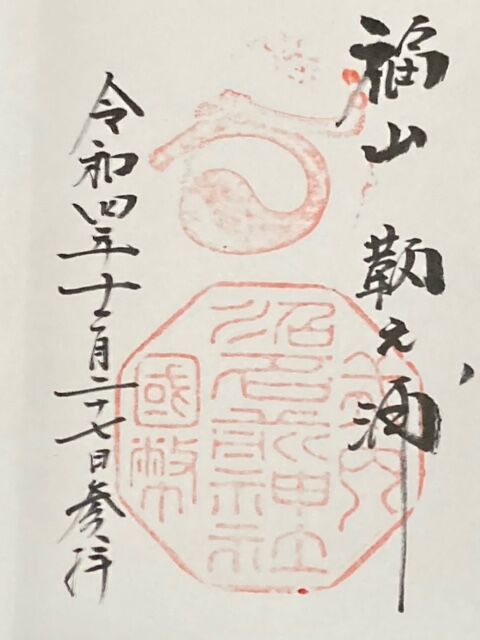 福山 鞆之浦
式内
沼名前神社
國幣
令和四年十二月二十七日参拝